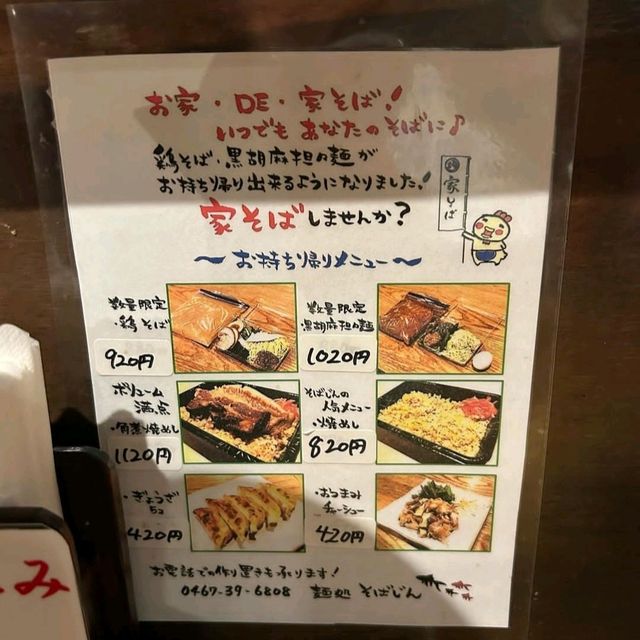 お家・DE・家そば!
いつでも あなたの そばに♪
鶏そば・黒胡麻担々麺が
お持ち帰り出来るようになりました!
家そばしませんか?
家そば
〜お持ち帰りメニュー〜
数量限定
・鶏そば
920円
数量限定
・黒胡麻担々麺
1020円
ボリューム
満点
・角煮焼めし
1120円
そばじんの
人気メニュー
・焼めし
820円
・ぎょうざ
5コ
420円
・おつまみ
チャーシュー
420円
お電話での作り置きも承ります!
0467-39-6808 麺処 そばじん
み